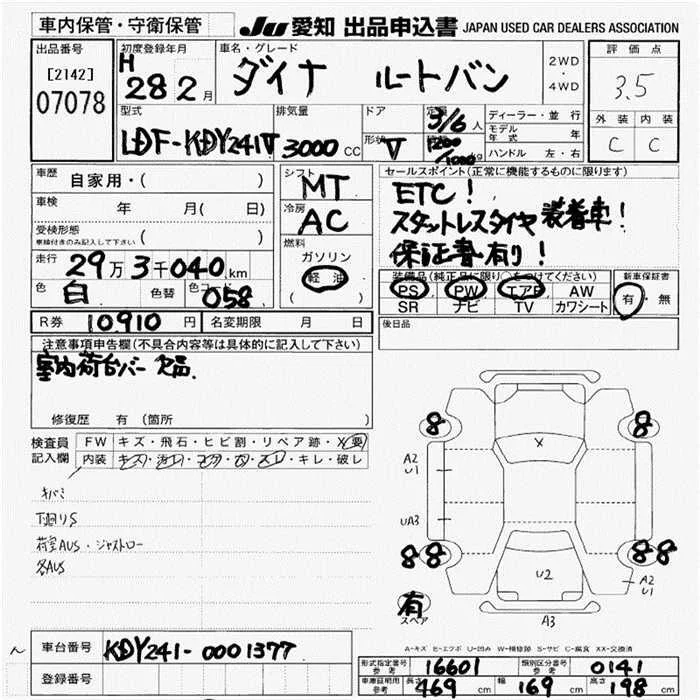 車内保管・守衛保管
JU 愛知 出品申込書 JAPAN USED CAR DEALERS ASSOCIATION
出品番号
[2142]
07078
初度登録年月
H 28 2月
車名・グレード
ダイナ ルートバン
2WD
・
4WD
評価点
3.5
外装 内装
C C
型式
LDF-KDY241V
排気量
3000 CC
ドア
形状
V
定員
3/6人
1200/1000kg
ディーラー・並行
モデル年式 年
ハンドル 左・右
車歴
自家用・( )
車検
年 月( 日)
受検形態
車検付きのみ記入して下さい ( )
走行
29万3千040km
色
白
色替
色コード
058
シフト
MT
冷房
AC
燃料
ガソリン
軽油
( )
セールスポイント(正常に機能するものに限ります)
ETC!
スタットレスタイヤ装着車!
保証書有り!
装備品(純正品に限り○をつけてください)
PS PW エアB AW
SR ナビ TV カワシート
新車保証書
有・無
R券 10910円
名変期限 月 日
後日品
注意事項申告欄(不具合内容等は具体的に記入して下さい)
室内荷台バー欠品.
修復歴 有 (箇所 )
検査員記入欄
FW キズ・飛石・ヒビ割・リペア跡・X要
内装 キズ・汚レ・コゲ・穴・スレ・キレ・破レ
キバミ
下廻りS
荷室AUS・ジャストロー
各AUS
8 8
X
A2
U1
UA3
88 88
U2
A2
U1
有
スペア
A3
A-キズ E-エクボ U-凹み W-補修跡 S-サビ C-腐食 XX-交換済
車台番号 KDY241-0001377
登録番号
形式指定番号参考 16601
類別区分番号参考 0141
車庫証明用参考 長さ 469cm 幅 169cm 高さ 198cm